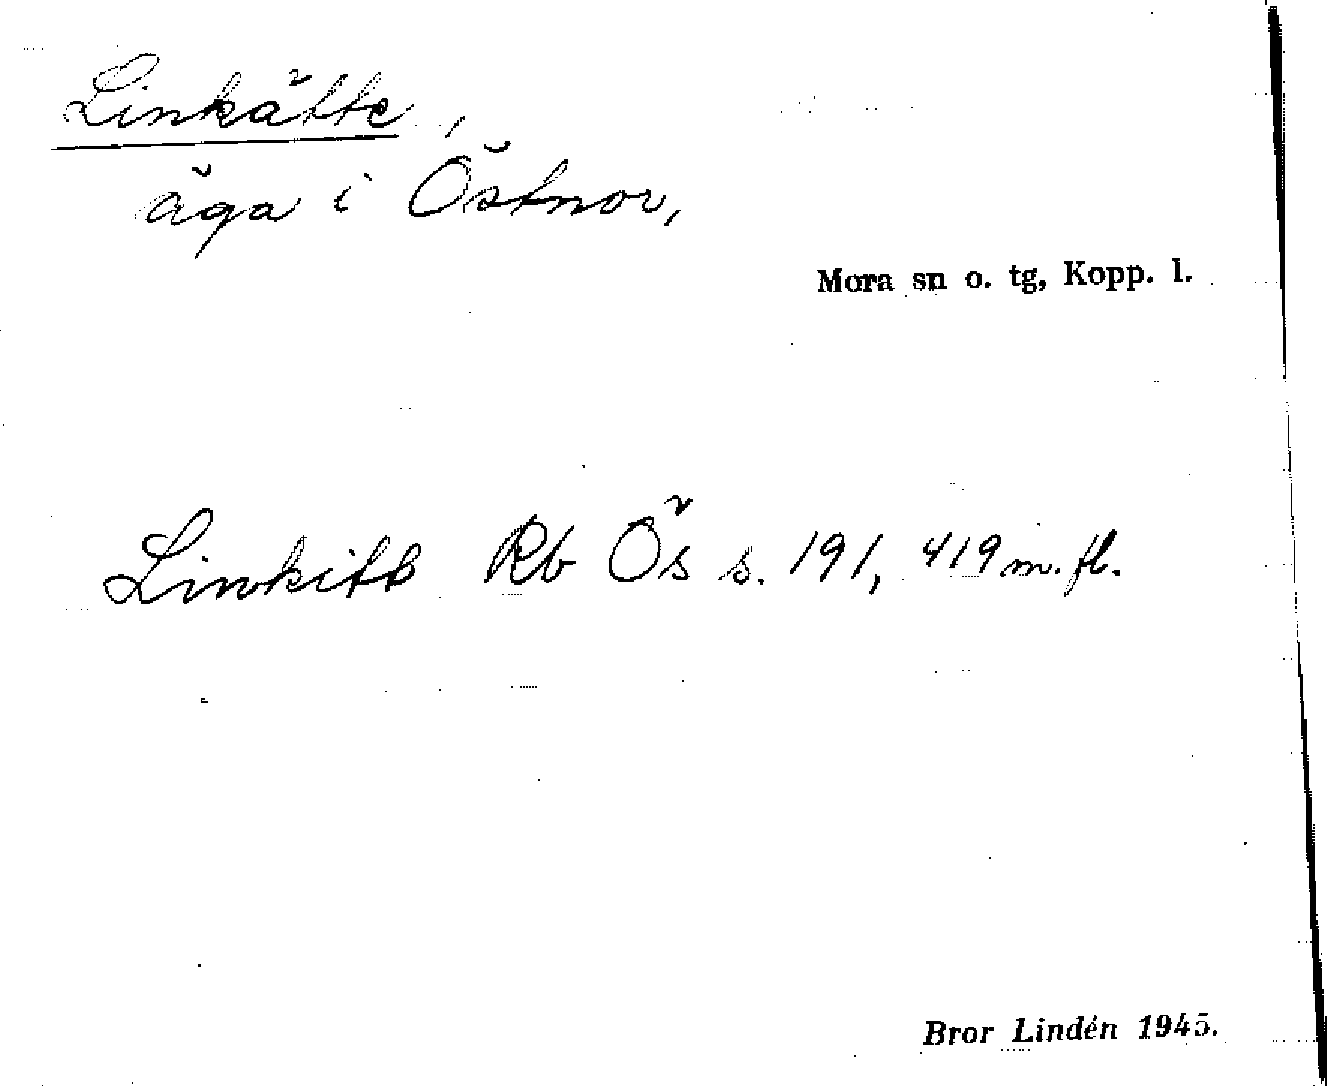 Linkätte,
äga i Östnor,
Mora sn o. tg, Kopp. l.
Linkitt Rb Ös s. 191, 419 m. fl.
Bror Lindén 1945.